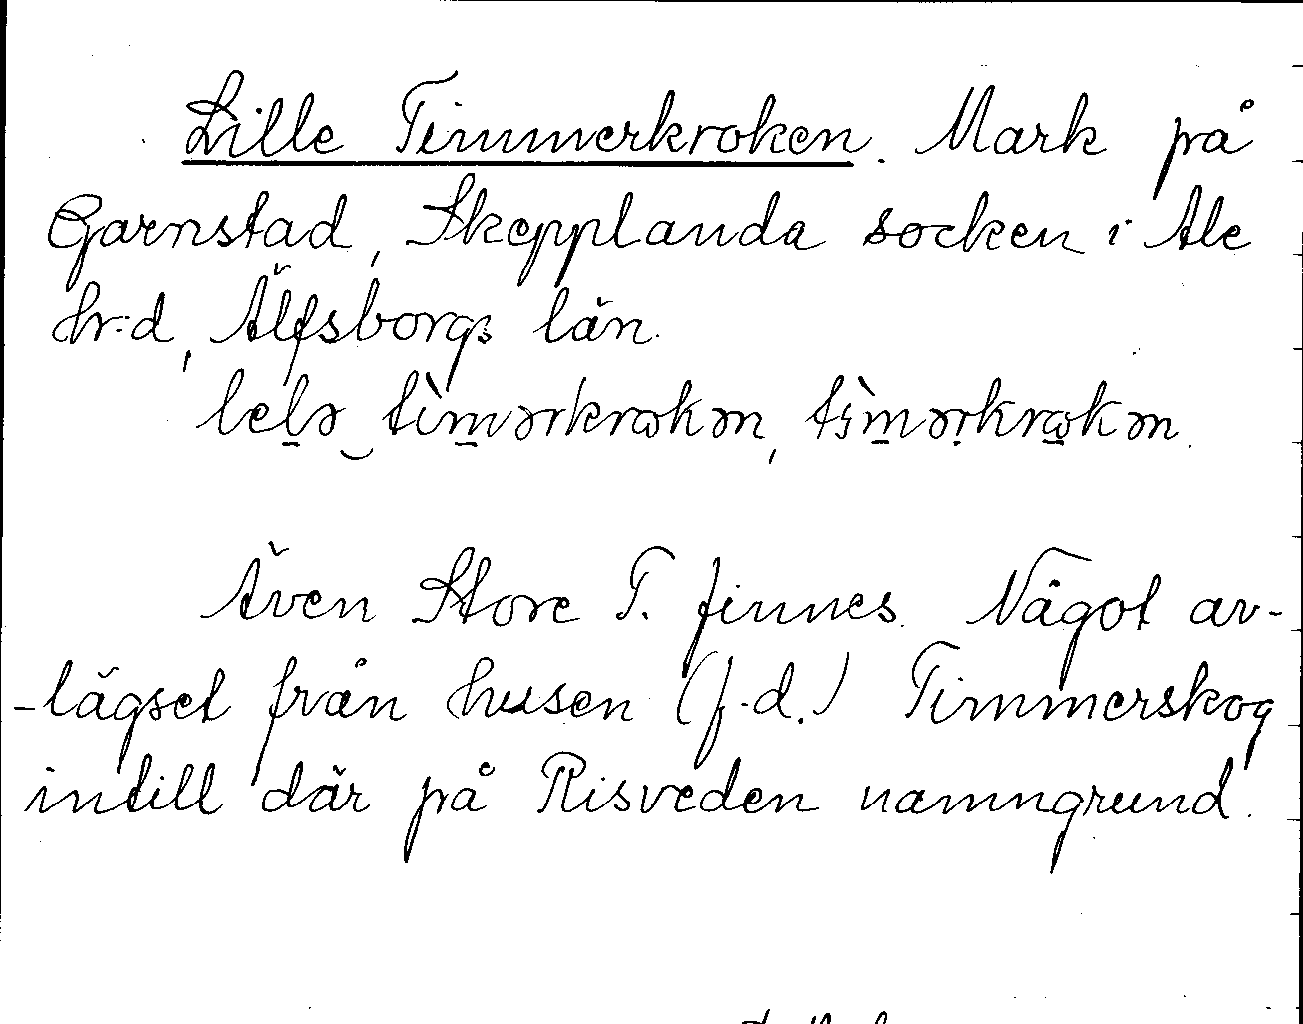 Lille Timmerkroken. Mark på
Garnstad, Skepplanda socken i Ale
hr:d, Älfsborgs län.
lelə tìmərkrɷkən, tìmərkrɷkən.
Även Store T. finnes. Något av-
-lägset från husen (f.d.) Timmerskog
intill där på Risveden namngrund.